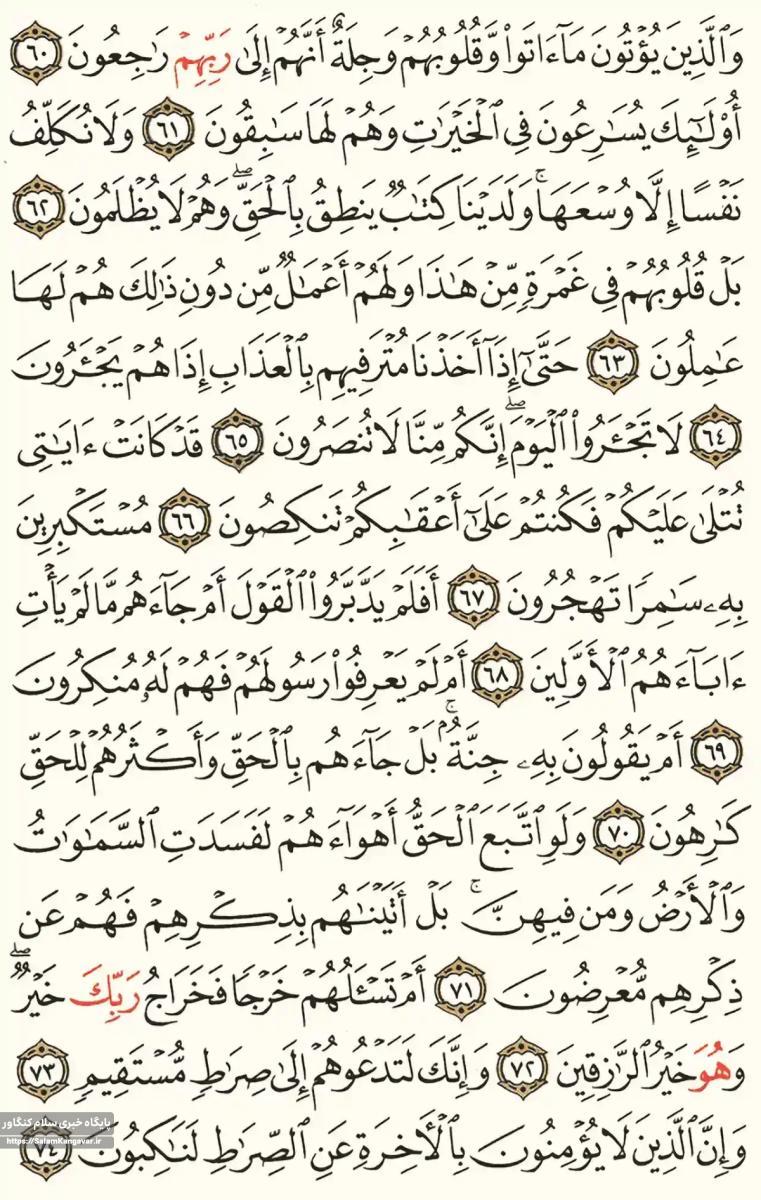 وَٱلَّذِينَ يُؤۡتُونَ مَآ ءَاتَواْ وَّقُلُوبُهُمۡ وَجِلَةٌ أَنَّهُمۡ إِلَىٰ رَبِّهِمۡ رَٰجِعُونَ ٦٠
أُوْلَـٰٓئِكَ يُسَٰرِعُونَ فِي ٱلۡخَيۡرَٰتِ وَهُمۡ لَهَا سَٰبِقُونَ ٦١ وَلَا نُكَلِّفُ
نَفۡسًا إِلَّا وُسۡعَهَاۚ وَلَدَيۡنَا كِتَٰبٌ يَنطِقُ بِٱلۡحَقِّۖ وَهُمۡ لَا يُظۡلَمُونَ ٦٢
بَلۡ قُلُوبُهُمۡ فِي غَمۡرَةٍ مِّنۡ هَٰذَا وَلَهُمۡ أَعۡمَٰلٌ مِّن دُونِ ذَٰلِكَ هُمۡ لَهَا
عَٰمِلُونَ ٦٣ حَتَّىٰٓ إِذَآ أَخَذۡنَا مُتۡرَفِيهِم بِٱلۡعَذَابِ إِذَا هُمۡ يَجۡـَٔرُونَ
٦٤ لَا تَجۡـَٔرُواْ ٱلۡيَوۡمَۖ إِنَّكُم مِّنَّا لَا تُنصَرُونَ ٦٥ قَدۡ كَانَتۡ ءَايَٰتِي
تُتۡلَىٰ عَلَيۡكُمۡ فَكُنتُمۡ عَلَىٰٓ أَعۡقَٰبِكُمۡ تَنكِصُونَ ٦٦ مُسۡتَكۡبِرِينَ
بِهِۦ سَٰمِرًا تَهۡجُرُونَ ٦٧ أَفَلَمۡ يَدَّبَّرُواْ ٱلۡقَوۡلَ أَمۡ جَآءَهُم مَّا لَمۡ يَأۡتِ
ءَابَآءَهُمُ ٱلۡأَوَّلِينَ ٦٨ أَمۡ لَمۡ يَعۡرِفُواْ رَسُولَهُمۡ فَهُمۡ لَهُۥ مُنكِرُونَ
٦٩ أَمۡ يَقُولُونَ بِهِۦ جِنَّةُۢۚ بَلۡ جَآءَهُم بِٱلۡحَقِّ وَأَكۡثَرُهُمۡ لِلۡحَقِّ
كَٰرِهُونَ ٧٠ وَلَوِ ٱتَّبَعَ ٱلۡحَقُّ أَهۡوَآءَهُمۡ لَفَسَدَتِ ٱلسَّمَٰوَٰتُ
وَٱلۡأَرۡضُ وَمَن فِيهِنَّۚ بَلۡ أَتَيۡنَٰهُم بِذِكۡرِهِمۡ فَهُمۡ عَن
ذِكۡرِهِم مُّعۡرِضُونَ ٧١ أَمۡ تَسۡـَٔلُهُمۡ خَرۡجًا فَخَرَاجُ رَبِّكَ خَيۡرٌۖ
وَهُوَ خَيۡرُ ٱلرَّٰزِقِينَ ٧٢ وَإِنَّكَ لَتَدۡعُوهُمۡ إِلَىٰ صِرَٰطٍ مُّسۡتَقِيمٍ ٧٣
وَإِنَّ ٱلَّذِينَ لَا يُؤۡمِنُونَ بِٱلۡأٓخِرَةِ عَنِ ٱلصِّرَٰطِ لَنَٰكِبُونَ ٧٤
پایگاه خبری سلام کنگاور
https://SalamKangavar.ir